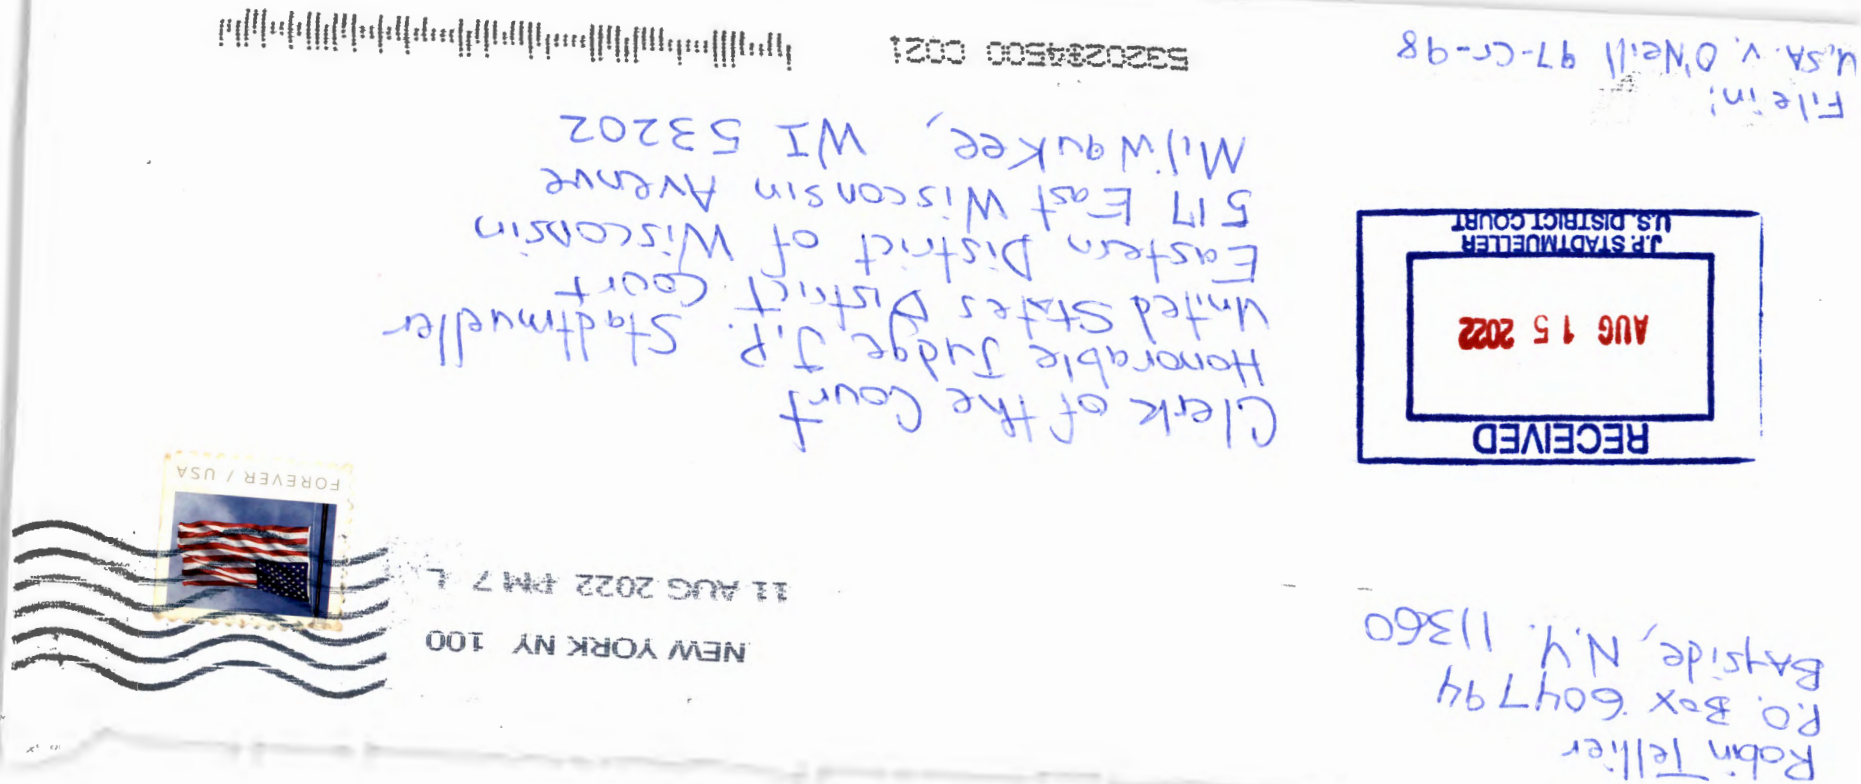 Robin Tellier
P.O. Box 604794
BAYside, N.Y. 11360
NEW YORK NY 100
11 AUG 2022 PM 7 L
FOREVER / USA
RECEIVED
AUG 15 2022
J.P. STADTMUELLER
U.S. DISTRICT COURT
Clerk of the Court
Honorable Judge J.P. Stadtmueller
United States District Court
Eastern District of Wisconsin
517 East Wisconsin Avenue
Milwaukee, WI 53202
File in:
U,SA. v. O'Neill 97-Cr-98
53202$4500 C021